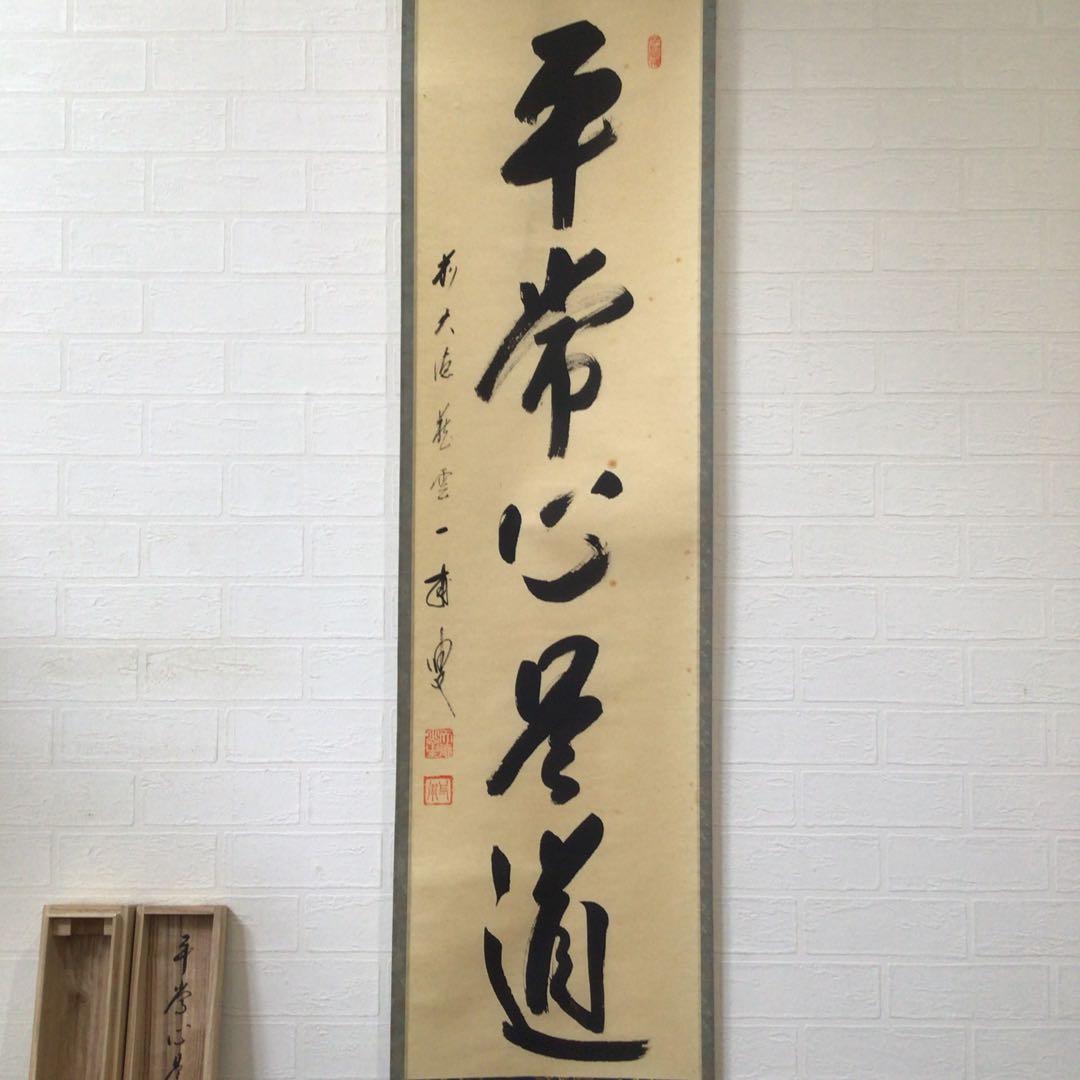 平常心是道
前大徳藍雲一甫叟
平常心是